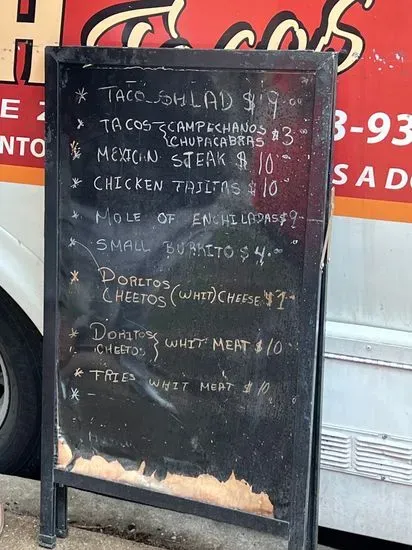 H Tacos
3-93
NTO
S A DO
* TACO SALAD $9.00
* TACOS { CAMPECHANOS CHUPACABRAS $3
* MEXICAN STEAK $10
* CHICKEN TAJITAS $10
* MOLE OF ENCHILADAS $9
* SMALL BURRITO $4.00
* DORITOS CHEETOS (WHIT) CHEESE $7
* DORITOS CHEETOS } WHIT MEAT $10
* FRIES WHIT MEAT $10
* -